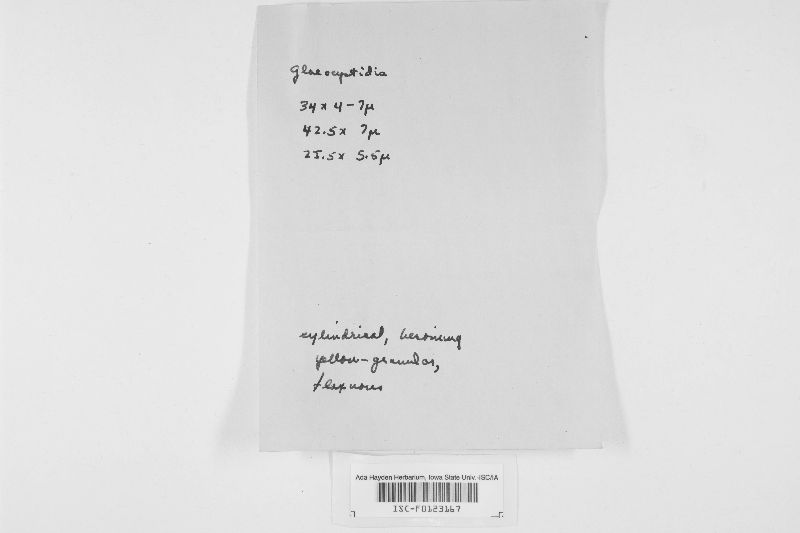 Gloeocystidia
34 x 4-7µ
42.5 x 7µ
25.5 x 5.5µ
cylindrical, becoming
yellow-granular,
flexuous
Ada Hayden Herbarium, Iowa State Univ.-ISC/IA
ISC-F0123167